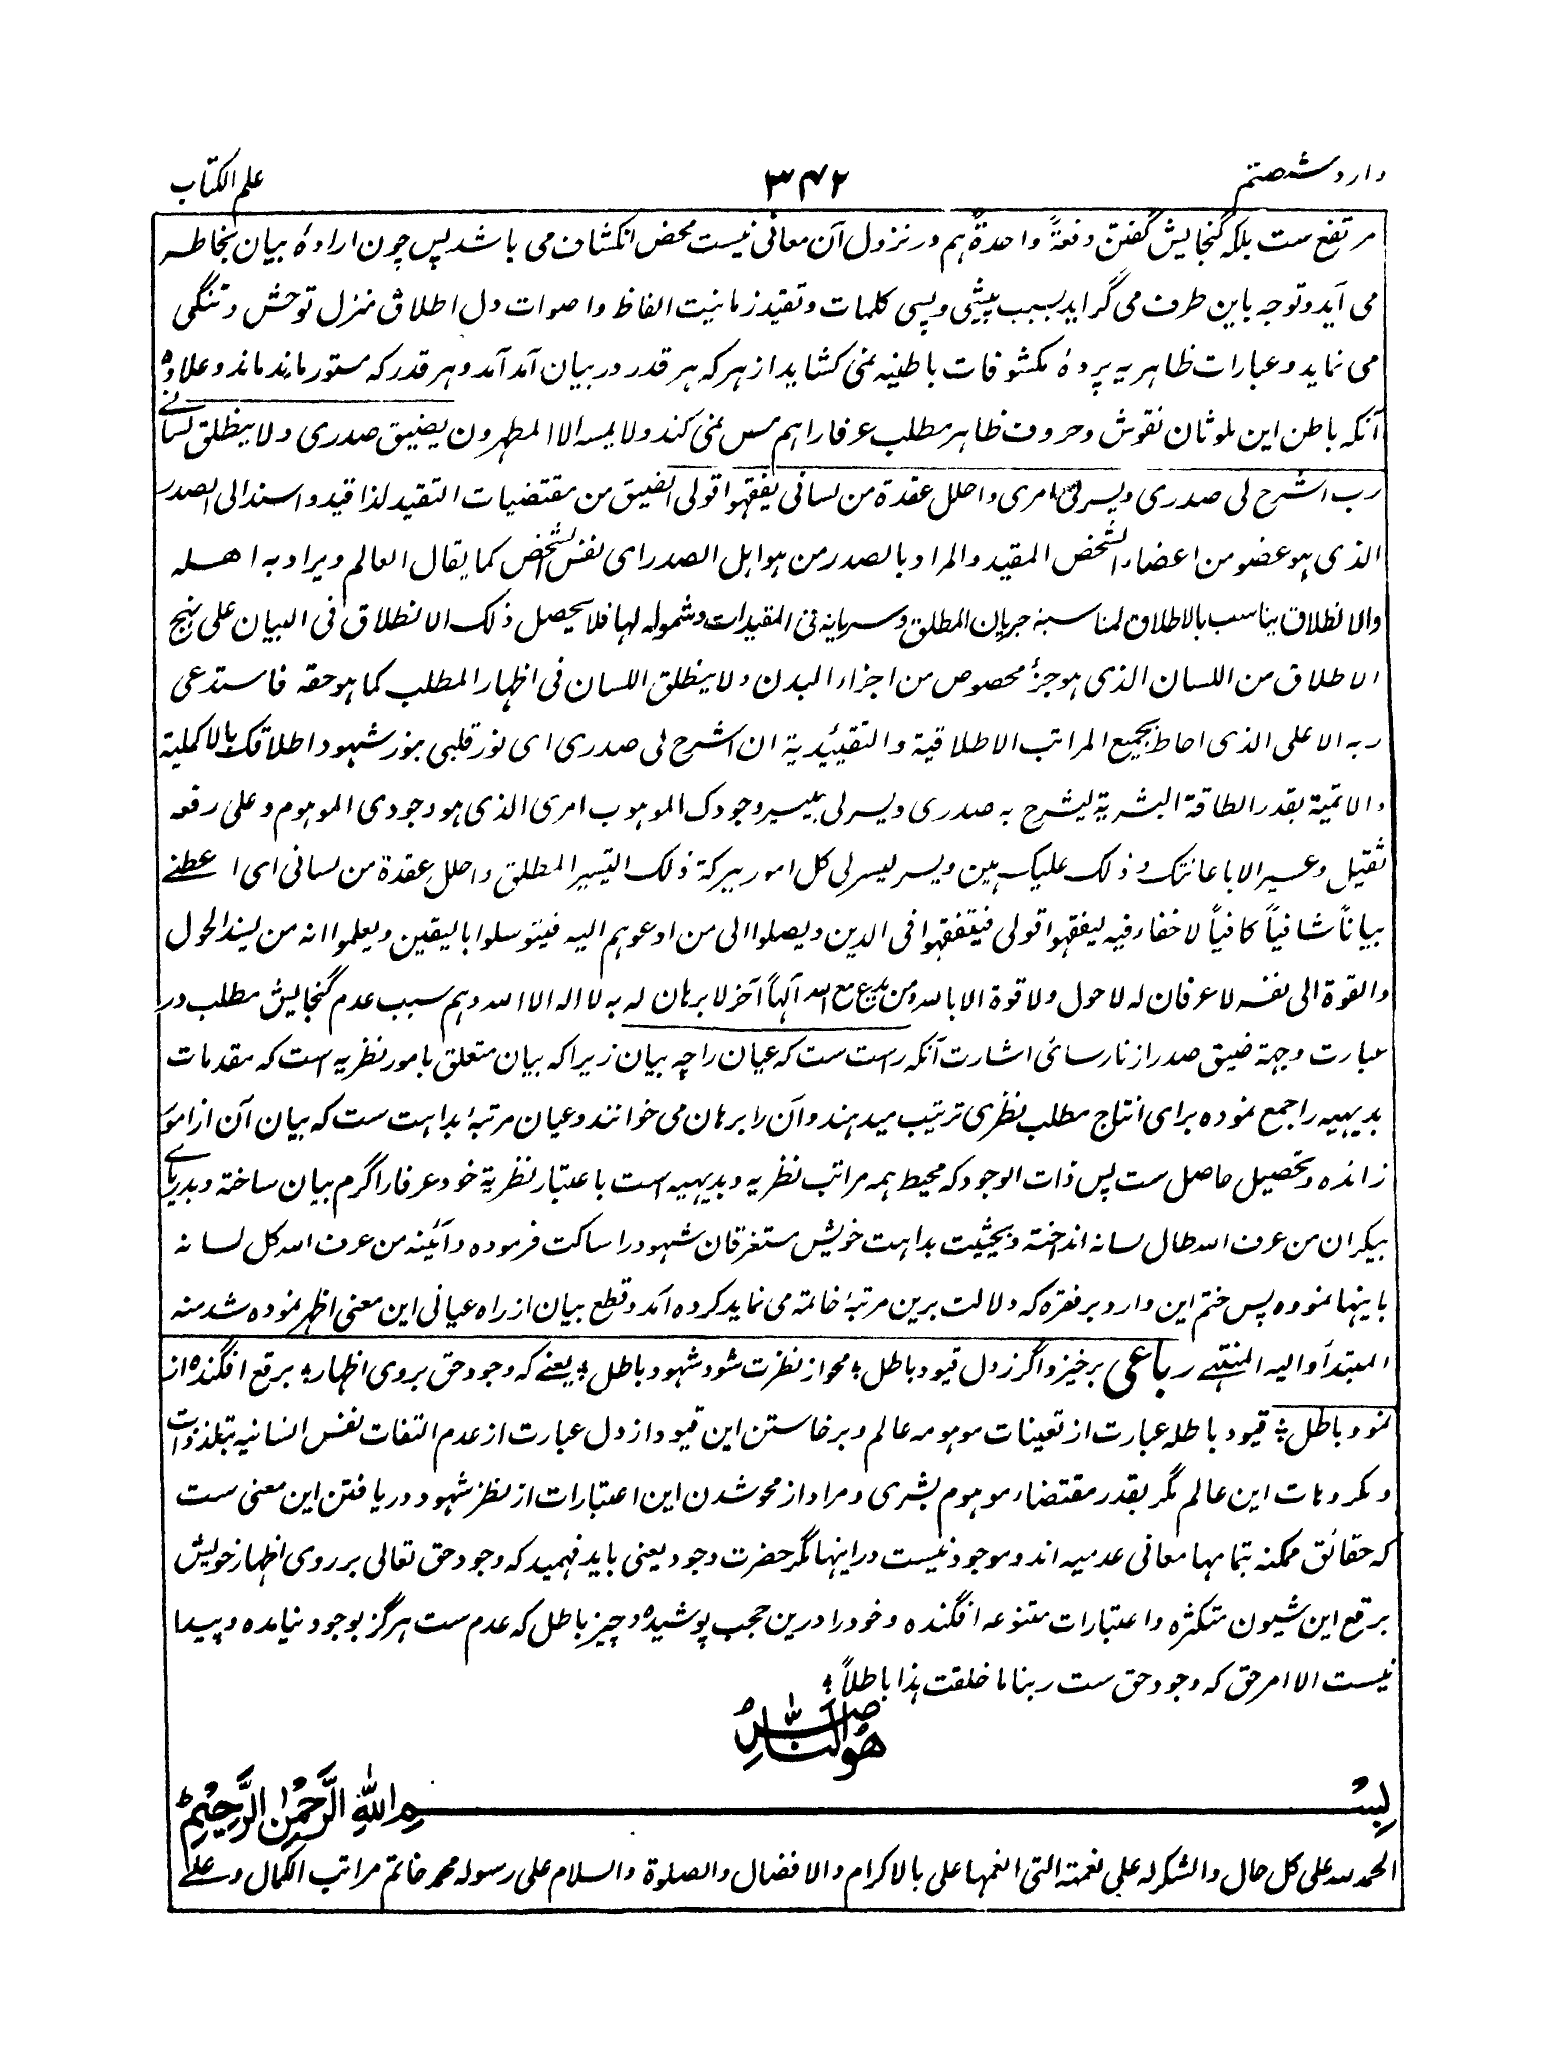 وارد شصتم
۳۴۲
علم الکتاب
مرتفع ست بلکه گنجایش گفتن دفعةً واحدةً هم در نزول آن معانی نیست محض انکشاف می باشد پس چون ارادهٔ بیان بخاطر
می آید و توجه باین طرف می گراید بسبب پیشی و پسی کلمات و تقید زمانیت الفاظ و اصوات دل اطلاق منزل توحش و تنگی
می نماید و عبارات ظاهریه پردهٔ مکشوفات باطنیه نمی کشاید از هر که هر قدر در بیان آمد آمد و هر قدر که مستور ماند ماند و علاوه
آنکه باطن این ملوثان نقوش و حروف ظاهر مطلب عرفا را هم مس نمی کند و لا یمسه الا المطهرون یضیق صدری و لا ینطلق لسانی
رب اشرح لی صدری و یسر لی امری و احلل عقدة من لسانی یفقهوا قولی الضیق من مقتضیات التقید لذا قید و اسند الی الصدر
الذی هو عضو من اعضاء الشخص المقید و المراد بالصدر من هو اهل الصدر ای نفس الشخص کما یقال العالم و یراد به اهله
والانطلاق یناسب بالاطلاق لمناسبة جریان المطلق و سریانه فی المقیدات و شموله لها فلا یحصل ذلک الانطلاق فی البیان علی نهج
الاطلاق من اللسان الذی هو جزؤ مخصوص من اجزاء البدن و لا ینطلق اللسان فی اظهار المطلب کما هو حقه فاستدعی
ربه الاعلی الذی احاط بجمیع المراتب الاطلاقیة و التقییدیة ان اشرح لی صدری ای نور قلبی بنور شهود اطلاقک بالاکملیة
والاتمیة بقدر الطاقة البشریة لیشرح به صدری و یسر لی بتیسیر وجودک الموهوب امری الذی هو وجودی الموهوم و علی رفعه
ثقیل و عسیر الا باعانتک و ذلک علیک هین و یسیر لیسر لی کل امور ببرکة ذلک التیسیر المطلق و احلل عقدة من لسانی ای اعطنی
بیاناً شافیاً کافیاً لا خفاء فیه لیفقهوا قولی فیتفقهوا فی الدین و یصلوا الی من ادعوهم الیه فیتوسلوا بالیقین و یعلموا انه من یسند الحول
والقوة الی نفسه لا عرفان له لا حول و لا قوة الا بالله و من یدع مع الله آلهاً آخر لا برهان له به لا اله الا الله و هم سبب عدم گنجایش مطلب در
عبارت و جهة ضیق صدر از نارسائی اشارت آنکه راست ست که عیان را چه بیان زیرا که بیان متعلق بامور نظریه است که مقدمات
بدیهیه را جمع نموده برای انتاج مطلب نظری ترتیب میدهند و آن را برهان می خوانند و عیان مرتبهٔ بداهت ست که بیان آن از امور
زائده و تحصیل حاصل ست پس ذات الوجود که محیط همه مراتب نظریه و بدیهیه است باعتبار نظریة خود عرفا را گرم بیان ساخته و بدریای
بیکران من عرف الله طال لسانه انداخته و بحیثیت بداهت خویش مستغرقان شهود را ساکت فرموده و آئینه من عرف الله کل لسانه
باینها نموده پس ختم این وارد بر فقره که دلالت برین مرتبهٔ خاتمه می نماید کرده آمد و قطع بیان از راه عیانی این معنی اظهر نموده شد منه
المبتدأ و الیه المنتهی رباعی برخیزد اگر ز دل قیود باطل ؛ محو از نظرت شود شهود باطل ؛ یعنی که وجود حق بروی اظهار ؛ برقع افگنده از
نمود باطل ؛ قیود باطله عبارت از تعینات موهومه عالم و برخاستن این قیود از دل عبارت از عدم التفات نفس انسانیه بتلذذات
و مکروهات این عالم مگر بقدر مقتضاء موهوم بشری و مراد از محو شدن این اعتبارات از نظر شهود دریافتن این معنی ست
که حقائق ممکنه بتمامها معانی عدمیه اند و موجود نیست در اینها مگر حضرت وجود یعنی باید فهمید که وجود حق تعالی بر روی اظهار خویش
برقع این شیون متکثره و اعتبارات متنوعه افگنده و خود را درین حجب پوشیده و چیز باطل که عدم ست هرگز بوجود نیامده و پیدا
نیست الا امر حق که وجود حق ست ربنا ما خلقت هذا باطلاً ؛
هُوَ النَّاصِرُ
بِسْمِ اللهِ الرَّحْمٰنِ الرَّحِیْمِ
الحمد لله علی کل حال و الشکر له علی نعمته التی انعمها علی بالاکرام و الافضال و الصلوة و السلام علی رسوله محمد خاتم مراتب الکمال و علی